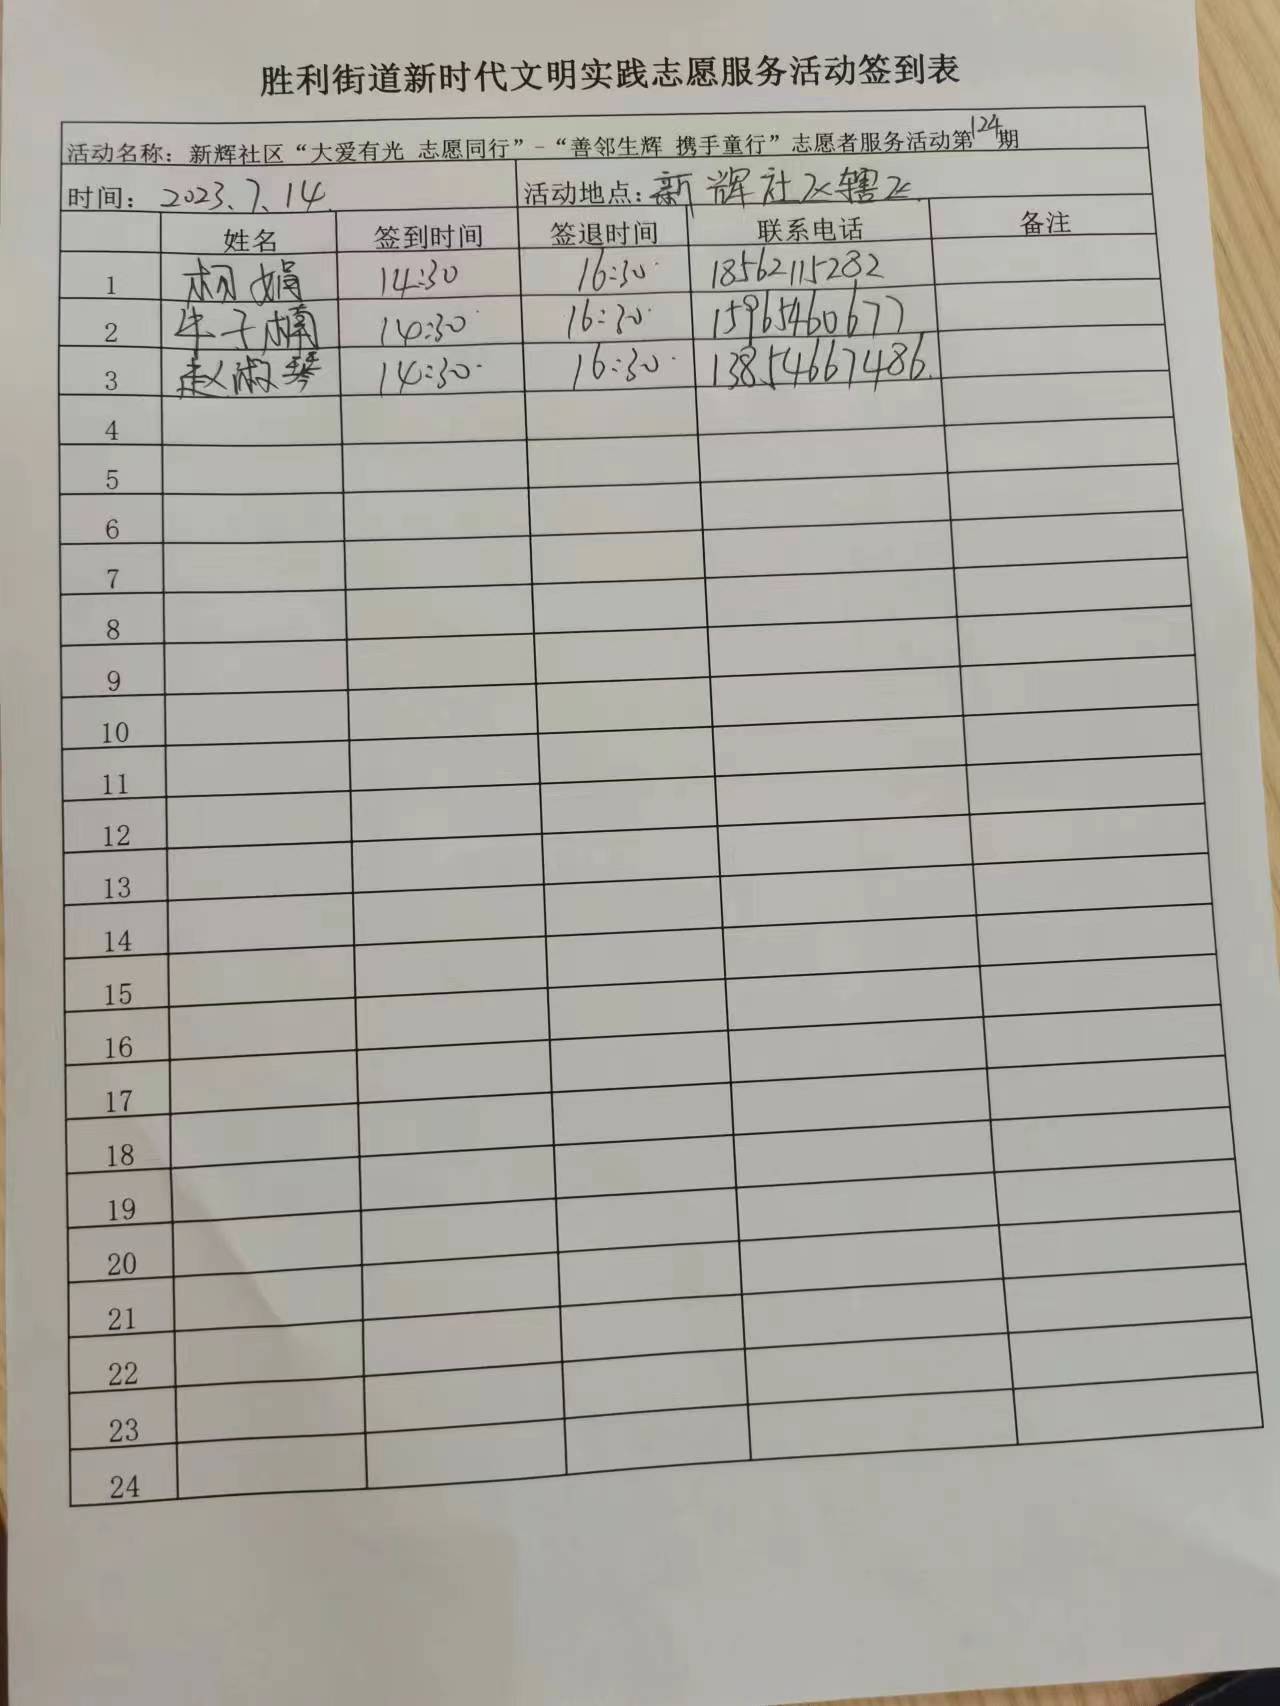 胜利街道新时代文明实践志愿服务活动签到表
活动名称：新辉社区“大爱有光 志愿同行”-“善邻生辉 携手童行”志愿者服务活动第124期
时间：2023.7.14. 活动地点：新辉社区辖区.
姓名 签到时间 签退时间 联系电话 备注
1 杨娟 14:30 16:30 18562115282
2 牛子楠 14:30 16:30 15965460677
3 赵淑琴 14:30 16:30 13854667486.
4
5
6
7
8
9
10
11
12
13
14
15
16
17
18
19
20
21
22
23
24